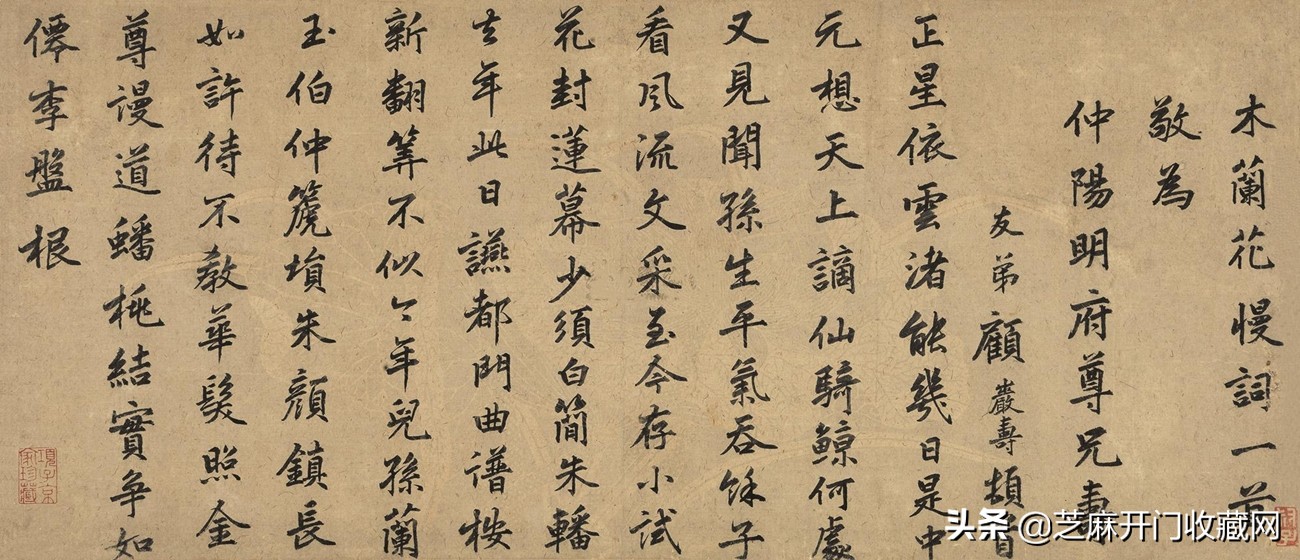 木蘭花慢詞一首
敬為
仲陽明府尊兄壽
友弟顧巖壽頓首
正星依雲渚能幾日是中
元想天上謫仙騎鯨何處
又見聞孫生平氣吞餘子
看風流文采至今存小試
花封蓮幕少須白簡朱轓
去年此日讌都門曲譜按
新翻筭不似今年兒孫蘭
玉伯仲篪塤朱顏鎮長
如許待不教華髮照金
尊漫道蟠桃結實爭如
僊李盤根
項子京
家珍藏
头条 @芝麻开门收藏网